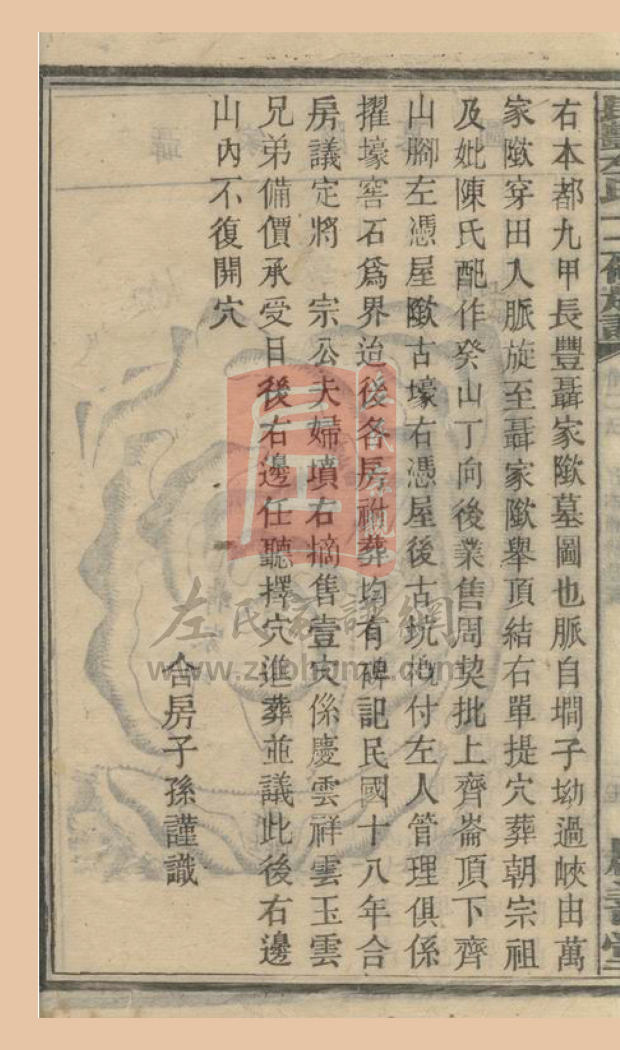 右本都九甲長豐聶家陇墓圖也脈自堈子坳過峽由萬
家陇穿田入脈旋至聶家陇舉頂結右單提穴葬朝宗祖
及妣陳氏配作癸山丁向後業售周契批上齊崙頂下齊
山腳左憑屋陇古壕右憑屋後古坑概付左人管理俱係
擢壕窖石爲界迨後各房祔葬均有碑記民國十八年合
房議定將 宗公夫婦墳右摘售壹穴係慶雲祥雲玉雲
兄弟備價承受日後右邊任聽擇穴進葬並議此後右邊
山內不復開穴
合房子孫謹識
左氏家譜網
www.zuohome.com